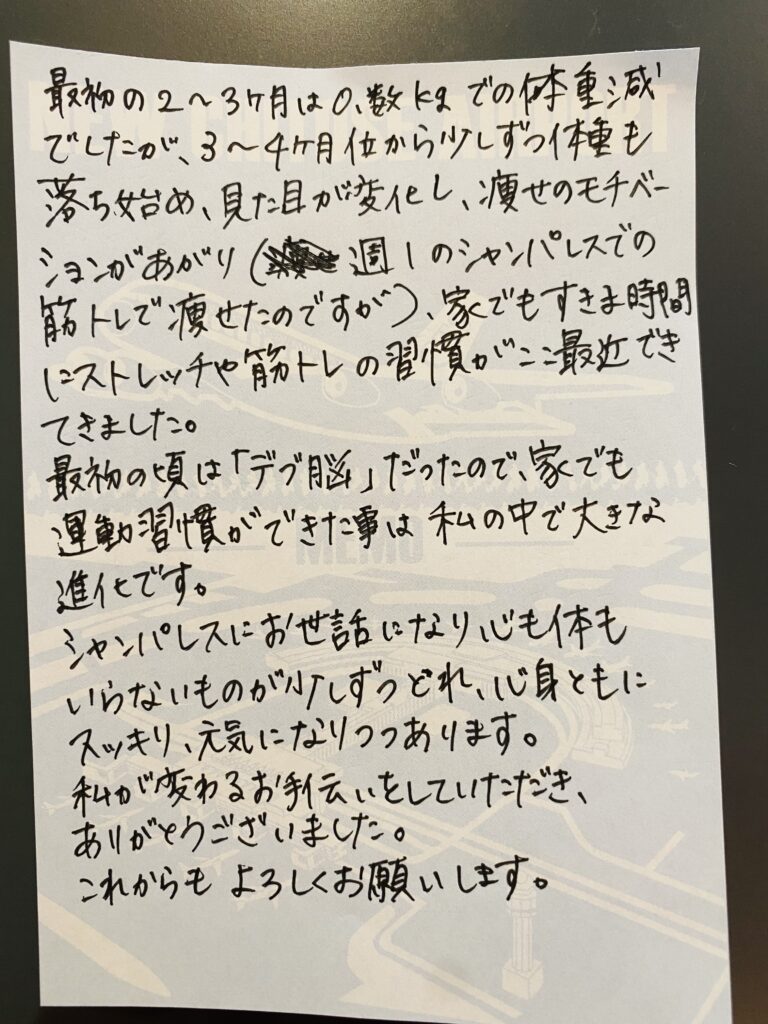 最初の2～3ヶ月は0.数kgでの体重減
でしたが、3～4ヶ月位から少しずつ体重も
落ち始め、見た目が変化し、痩せのモチベー
ションがあがり(週1のシャンパレスでの
筋トレで痩せたのですが)、家でもすきま時間
にストレッチや筋トレの習慣がここ最近でき
てきました。
最初の頃は「デブ脳」だったので、家でも
運動習慣ができた事は私の中で大きな
進化です。
シャンパレスにお世話になり心も体も
いらないものが少しずつどれ、心身ともに
スッキリ、元気になりつつあります。
私が変わるお手伝いをしていただき、
ありがとうございました。
これからもよろしくお願いします。
MEMO